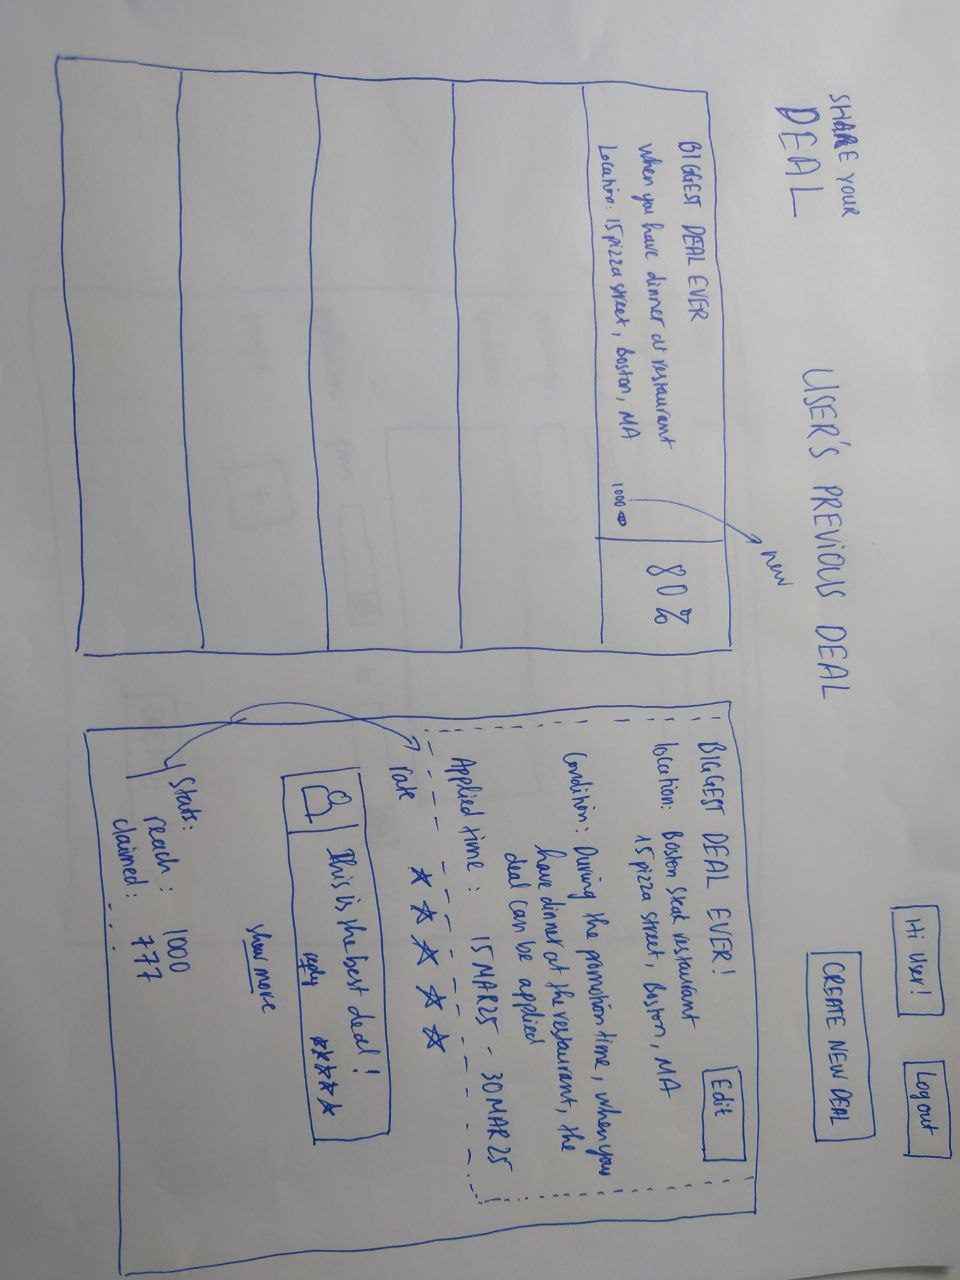 Hi User!
Logout
SHARE YOUR
DEAL
USER'S PREVIOUS DEAL
CREATE NEW DEAL
new
BIGGEST DEAL EVER
when you have dinner at restaurant
Location: 15 pizza street, Boston, MA
1000
80%
BIGGEST DEAL EVER!
Edit
location: Boston Steak restaurant
15 pizza street, Boston, MA
Condition: During the promotion time, when you
have dinner at the restaurant, the
deal can be applied
Applied time: 15 MAR 25 - 30 MAR 25
rate
This is the best deal!
reply
show more
Stats:
reach: 1000
claimed: 777
...